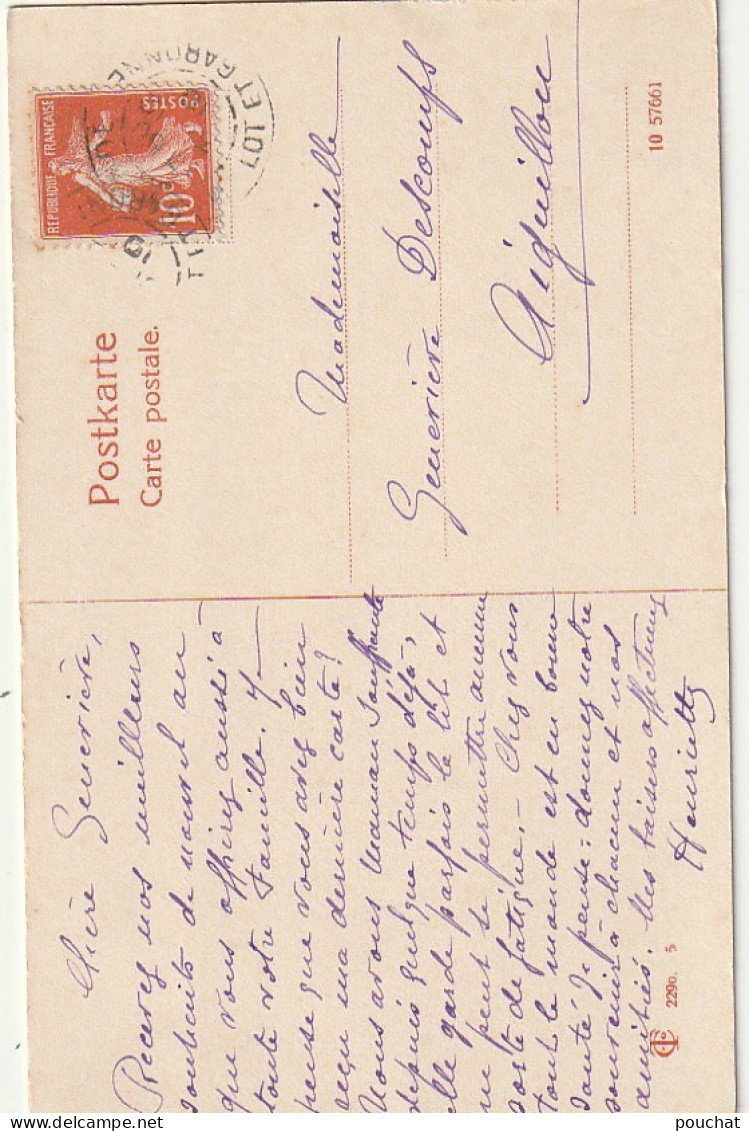 Postkarte
Carte postale.
REPUBLIQUE FRANÇAISE
POSTES
10c
LOT ET GARONNE
Mademoiselle
Geneviève Descomps
Aiguillon
10 57661
Chère Geneviève,
Recevez nos meilleurs
souhaits de nouvel an
que vous offrirez aussi à
toute votre Famille. Je
pense que vous avez bien
reçu ma dernière carte?
Nous avons Maman souffrante
depuis quelque temps déjà,
elle garde parfois le lit et
ne peut se permettre aucune
sorte de fatigue. – Chez vous
tout le monde est en bonne
santé je pense: donnez notre
souvenir à chacun et nos
amitiés. Mes baisers affectueux
Henriette
229o. 5
pouchat